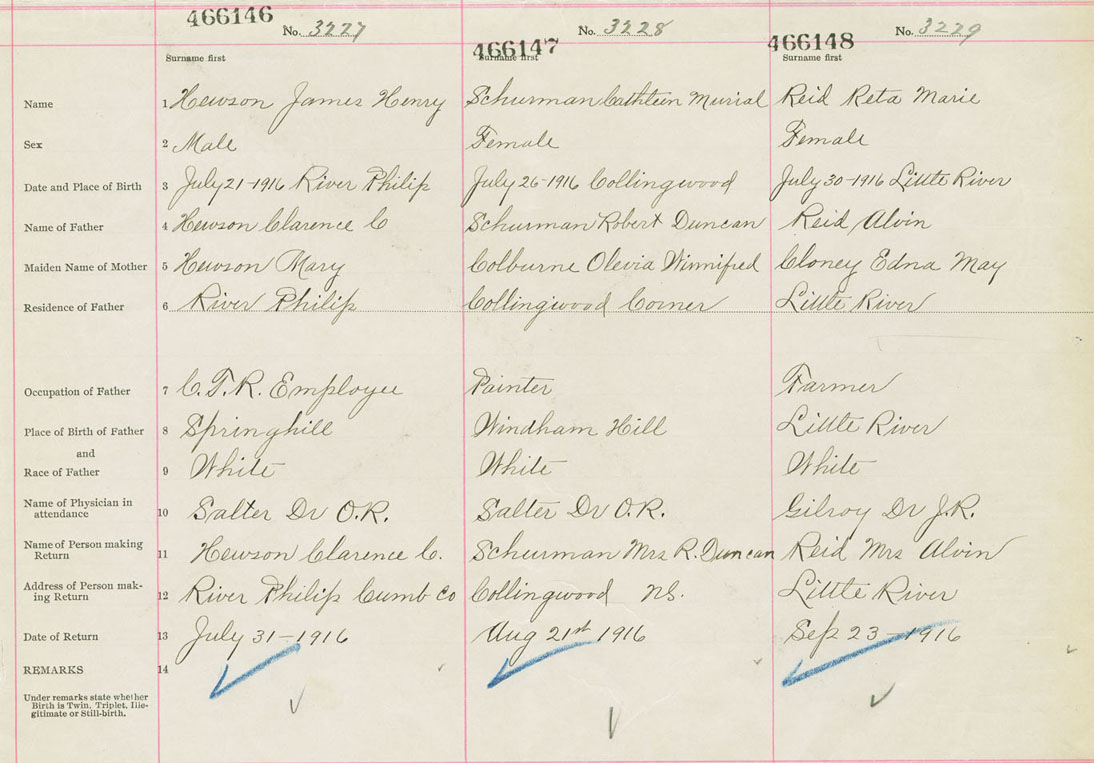 466146 No. 3227 No. 3228 No. 3229
466147 466148
Surname first Surname first Surname first
Name 1 Hewson James Henry Schurman Cathleen Murial Reid Reta Marie
Sex 2 Male Female Female
Date and Place of Birth 3 July 21-1916 River Philip July 26-1916 Collingwood July 30-1916 Little River
Name of Father 4 Hewson Clarence C Schurman Robert Duncan Reid Alvin
Maiden Name of Mother 5 Hewson Mary Colburne Olevia Winnifred Cloney Edna May
Residence of Father 6 River Philip Collingwood Corner Little River
Occupation of Father 7 C.T.R. Employee Painter Farmer
Place of Birth of Father 8 Springhill Windham Hill Little River
and
Race of Father 9 White White White
Name of Physician in
attendance 10 Salter Dr O.R. Salter Dr O.R. Gilroy Dr J.R.
Name of Person making
Return 11 Hewson Clarence C. Schurman Mrs R. Duncan Reid Mrs Alvin
Address of Person mak-
ing Return 12 River Philip Cumb Co Collingwood NS. Little River
Date of Return 13 July 31-1916 Aug 21st 1916 Sep 23-1916
REMARKS 14
Under remarks state whether
Birth is Twin, Triplet, Ille-
gitimate or Still-birth.